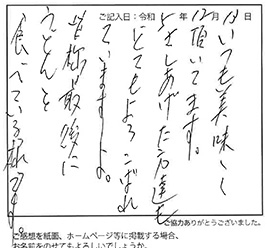 ご記入日：令和 5 年 12 月 13 日
いつも美味しく
頂いてます。
さしあげた方達も
とてもよろこばれ
ていますよ。
皆様最後に
うどんを
食べている様です。
ご協力ありがとうございました。
ご感想を紙面、ホームページ等に掲載する場合、
お名前をのせてもよろしいでしょうか。